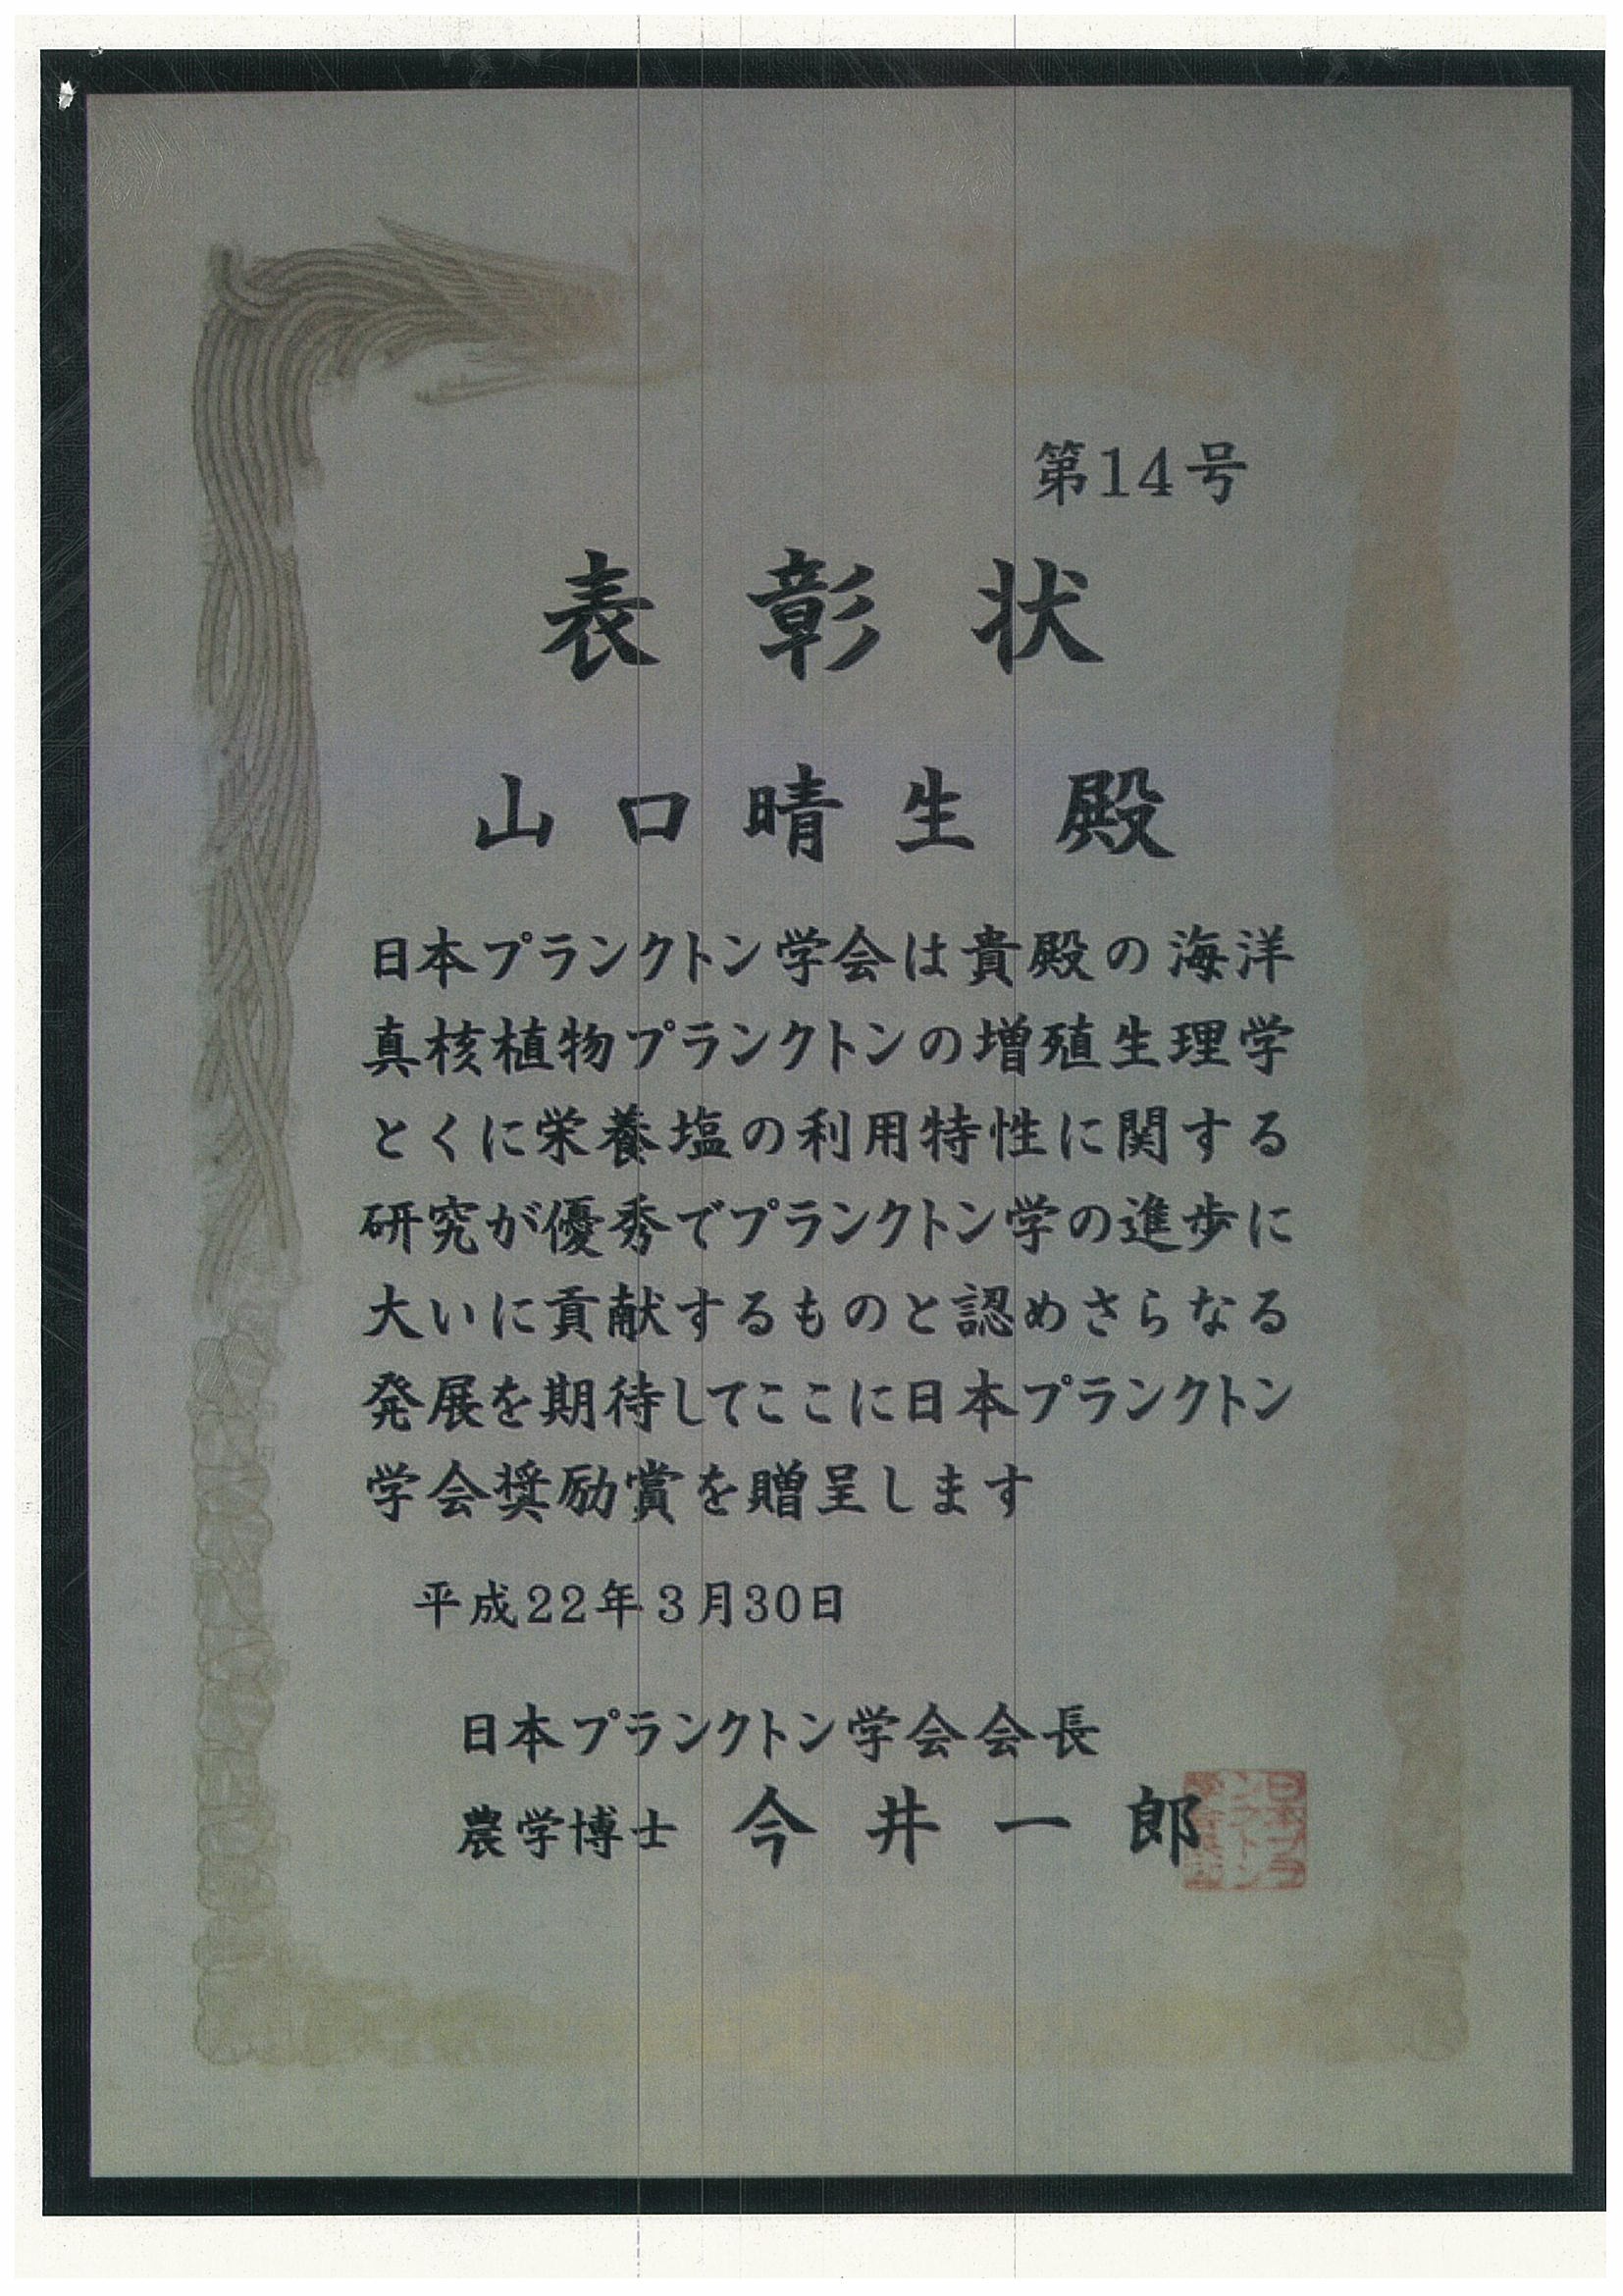 第14号
表彰状
山口晴生 殿
日本プランクトン学会は貴殿の海洋
真核植物プランクトンの増殖生理学
とくに栄養塩の利用特性に関する
研究が優秀でプランクトン学の進歩に
大いに貢献するものと認めさらなる
発展を期待してここに日本プランクトン
学会奨励賞を贈呈します
平成22年3月30日
日本プランクトン学会会長
農学博士 今井一郎